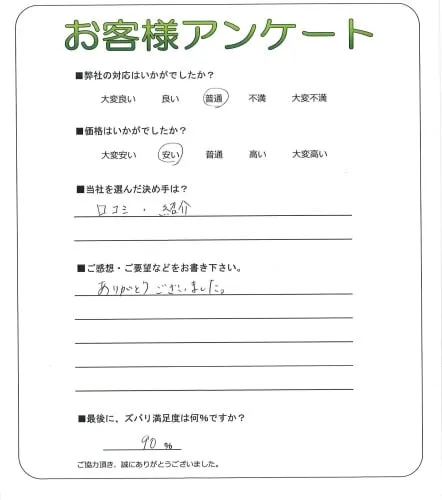 お客様アンケート
■弊社の対応はいかがでしたか?
大変良い 良い 普通 不満 大変不満
■価格はいかがでしたか?
大変安い 安い 普通 高い 大変高い
■当社を選んだ決め手は?
口コミ・紹介
■ご感想・ご要望などをお書き下さい。
ありがとうございました。
■最後に、ズバリ満足度は何%ですか?
90 %
ご協力頂き、誠にありがとうございました。